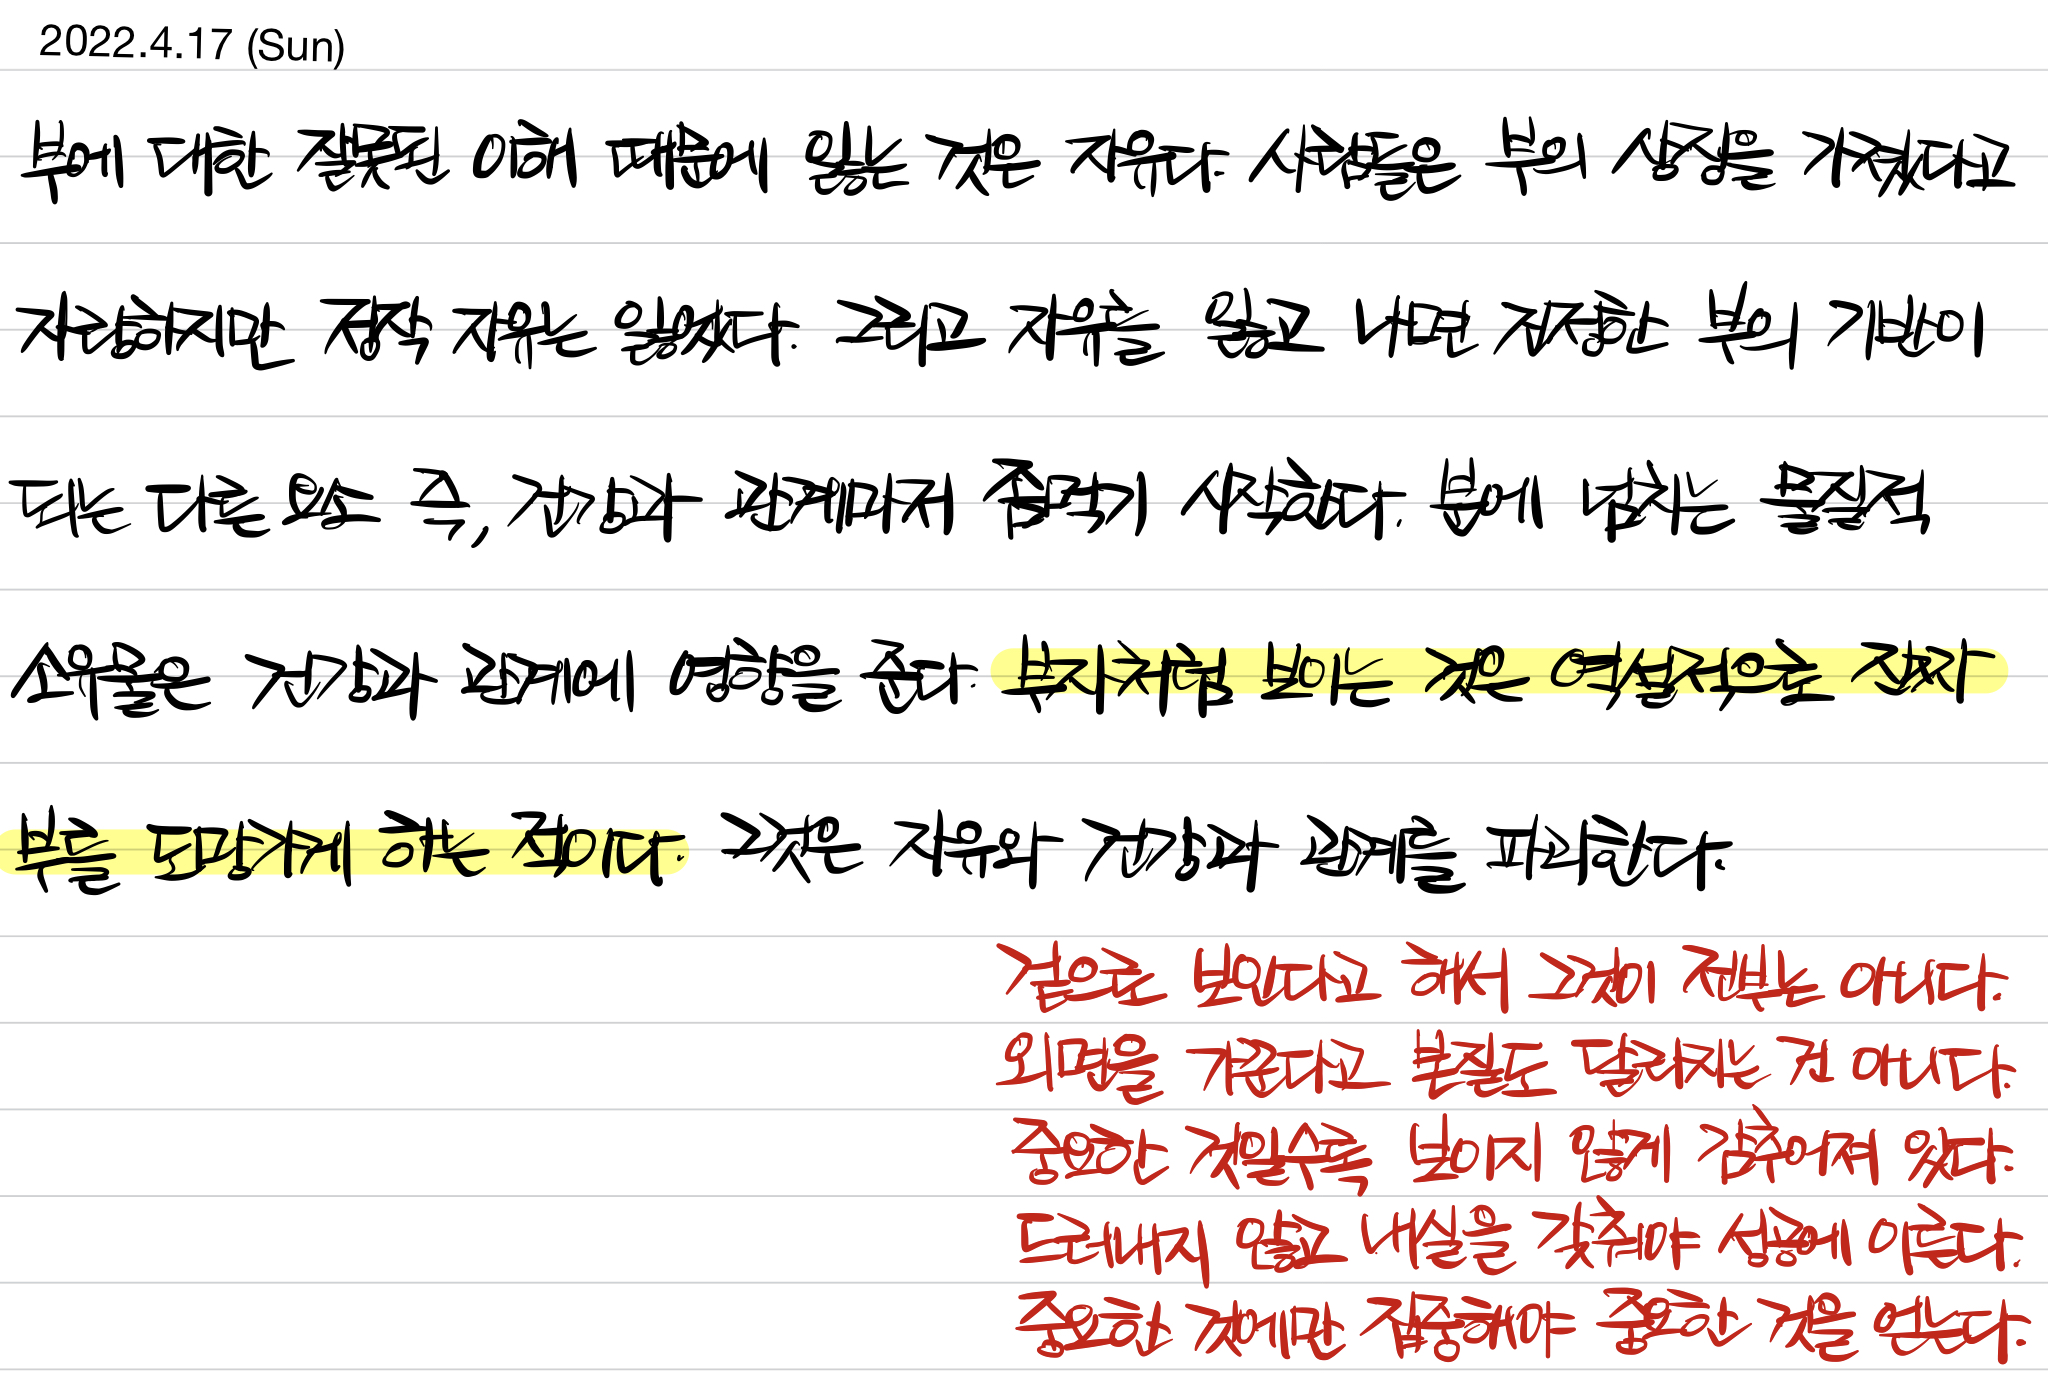 2022.4.17 (Sun)
부에 대한 잘못된 이해 때문에 잃는 것은 자유다. 사람들은 부의 상징을 가졌다고
자랑하지만 정작 자유는 잃었다. 그리고 자유를 잃고 나면 진정한 부의 기반이
되는 다른 요소 즉, 건강과 관계마저 좀먹기 시작한다. 분에 넘치는 물질적
소유물은 건강과 관계에 영향을 준다. 부자처럼 보이는 것은 역설적으로 진짜
부를 도망가게 하는 적이다. 그것은 자유와 건강과 관계를 파괴한다.
겉으로 보인다고 해서 그것이 전부는 아니다.
외면을 가꾼다고 본질도 달라지는 건 아니다.
중요한 것일수록 보이지 않게 감추어져 있다.
드러내지 않고 내실을 갖춰야 성공에 이른다.
중요한 것에만 집중해야 중요한 것을 얻는다.